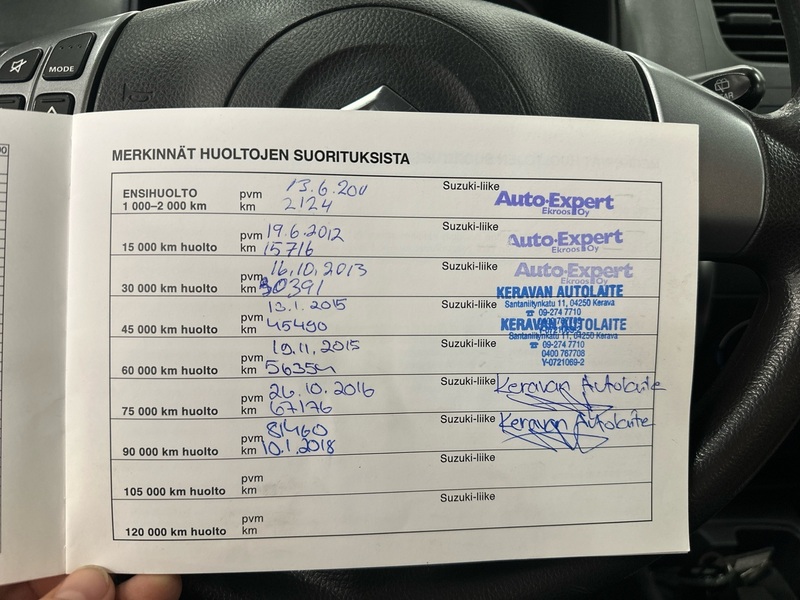 MODE
MERKINNÄT HUOLTOJEN SUORITUKSISTA
ENSIHUOLTO pvm 13.6.2011 Suzuki-liike Auto-Expert
1 000–2 000 km km 2124 Ekroos Oy
pvm 19.6.2012 Suzuki-liike Auto-Expert
15 000 km huolto km 15716 Ekroos Oy
pvm 16.10.2013 Suzuki-liike Auto-Expert
30 000 km huolto km 30391 Ekroos Oy
KERAVAN AUTOLAITE
pvm 13.1.2015 Suzuki-liike Santaniitynkatu 11, 04250 Kerava
45 000 km huolto km 45490 ☎ 09-274 7710
KERAVAN AUTOLAITE
pvm 19.11.2015 Suzuki-liike Santaniitynkatu 11, 04250 Kerava
☎ 09-274 7710
60 000 km huolto km 0400 767708
Y-0721069-2
pvm 26.10.2016 Suzuki-liike Keravan Autolaite
75 000 km huolto km 67176
81460 Suzuki-liike Keravan Autolaite
pvm
90 000 km huolto km 10.1.2018
pvm Suzuki-liike
105 000 km huolto km
pvm Suzuki-liike
120 000 km huolto km